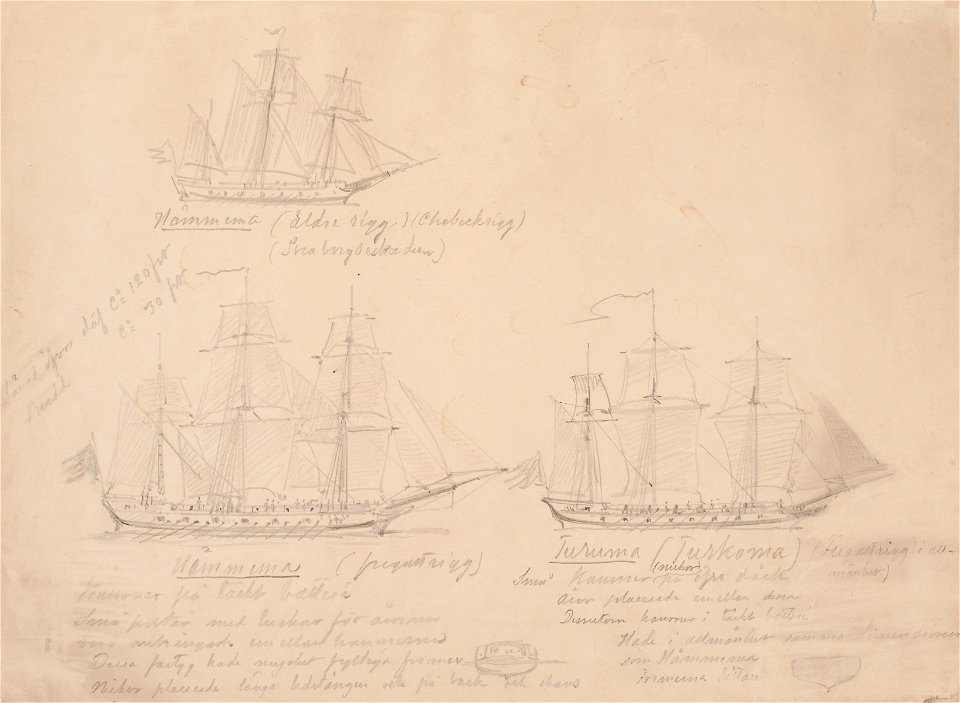 Hämmema (Äldre rigg.) (Chebeckrigg)
(Sveaborgseskadern)
däf Cª 120 for
Cª 30 for
Bredd
Hämmema (fregattrigg)
Kanoner på täckt batteri
Små portar med luckor för åror
voro anbringade emellan kanonerna
Dessa fartyg hade mycket fylliga former
Nickor placerade längs och på back och skans
Turuma (Turkoma) (Fregattrigg i all-
mänhet)
Små (nickor) Kanoner på öfre däck
Åror placerade emellan dem
Dessutom kanoner i täckt batteri
Hade i allmänhet samma dimensioner
som Hämmema
formerna lättare